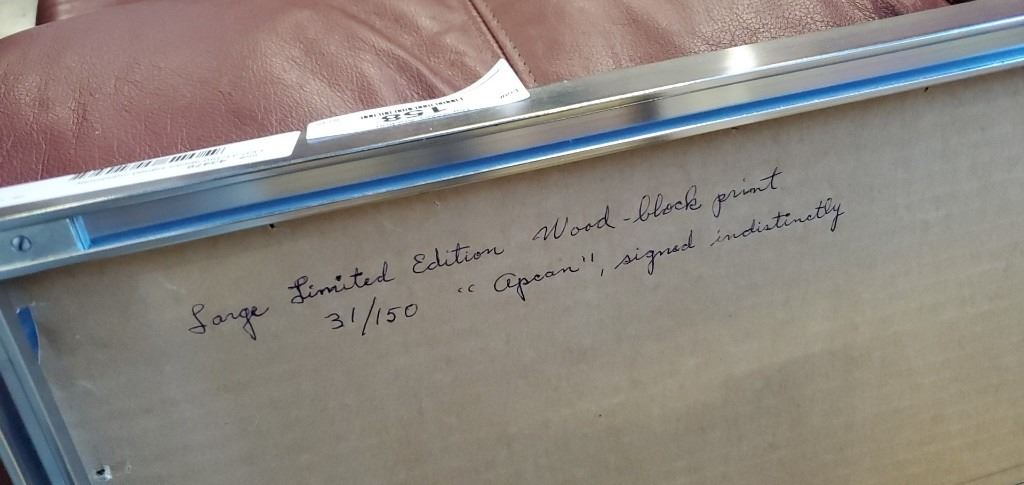 158
Large Limited Edition Wood-block print
31/150 "apcan", signed indistinctly